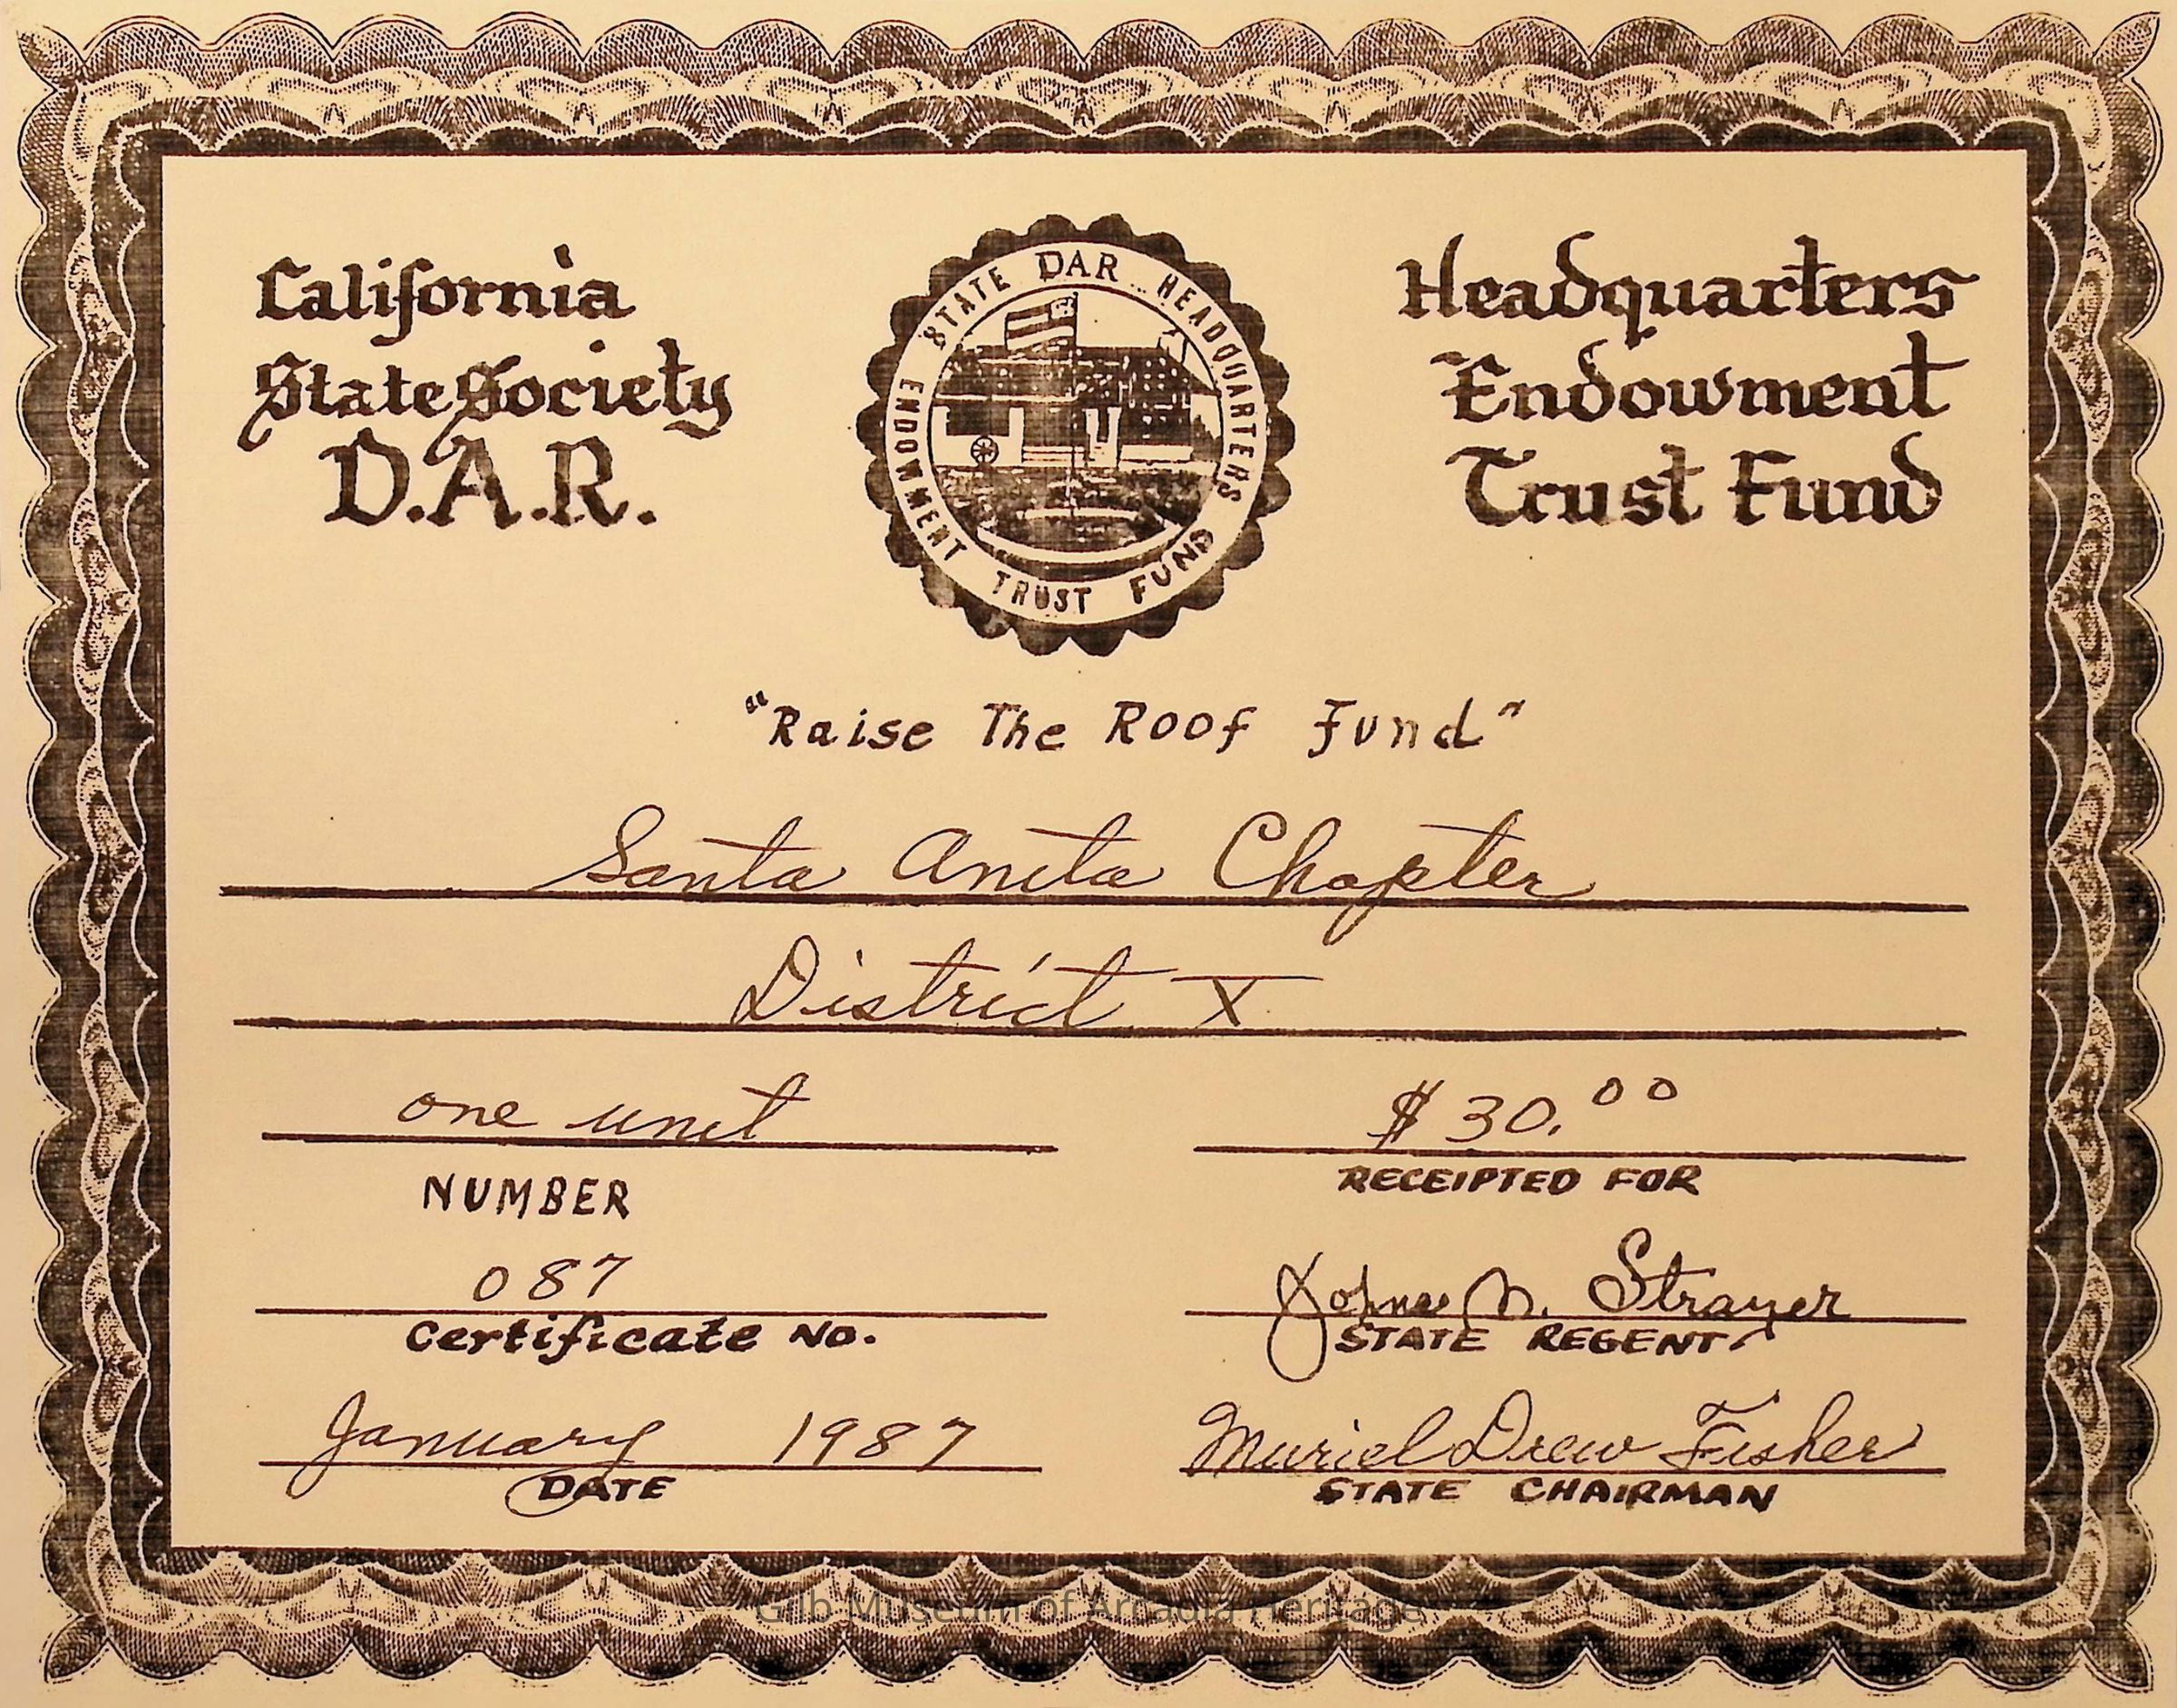 California
State Society
D.A.R.
STATE DAR HEADQUARTERS
ENDOWMENT TRUST FUND
Headquarters
Endowment
Trust Fund
"Raise The Roof Fund"
Santa Anita Chapter
District X
one unit
NUMBER
$30.00
RECEIPTED FOR
087
Certificate No.
N. Strayer
STATE REGENT
January 1987
DATE
Muriel Drew Fisher
STATE CHAIRMAN
Gilb Museum of Arcadia Heritage